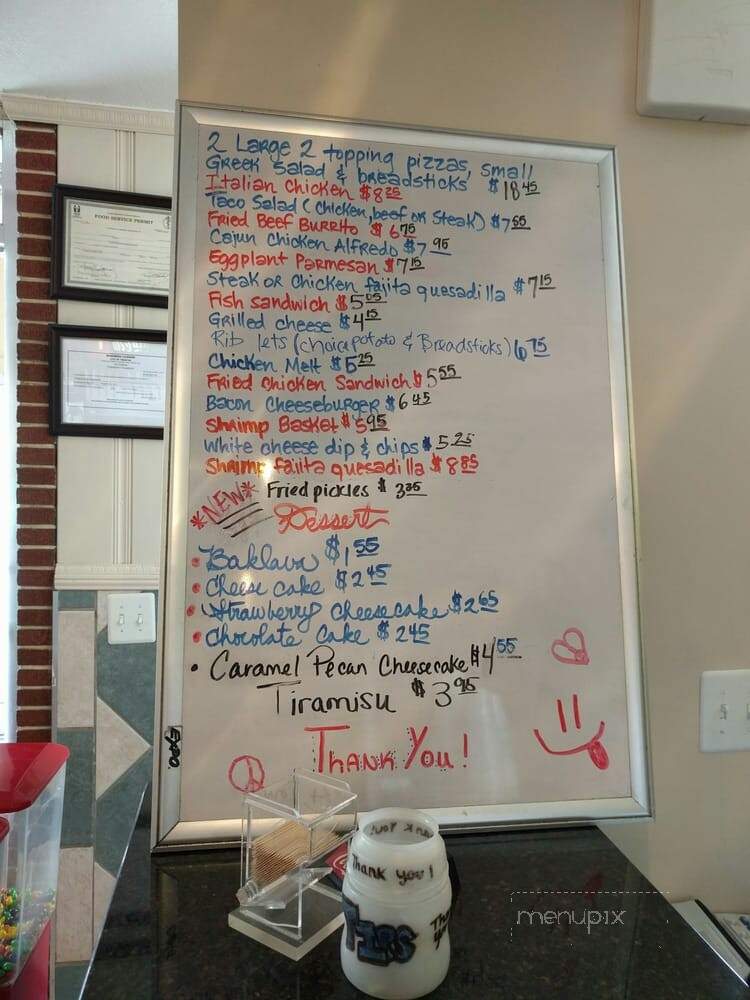 2 Large 2 topping pizzas, small
Greek Salad & breadsticks $18 45
Italian Chicken $8 25
Taco Salad (Chicken, beef or Steak) $7 65
Fried Beef Burrito $6 75
Cajun Chicken Alfredo $7 95
Eggplant Parmesan $7 15
Steak or Chicken fajita quesadilla $7 15
Fish sandwich $5 05
Grilled cheese $4 15
Rib lets (choice potato & Breadsticks) 6 75
Chicken Melt $5 25
Fried Chicken Sandwich $5 55
Bacon Cheeseburger $6 45
Shrimp Basket $5 95
White cheese dip & chips $5 25
Shrimp fajita quesadilla $8 85
Fried pickles $3 35
*NEW*
Dessert
• Baklava $1 55
• Cheese cake $2 45
• Strawberry Cheesecake $2 65
• Chocolate Cake $2 45
• Caramel Pecan Cheesecake $4 55
Tiramisu $3 95
Thank You!
EXPO.
FOOD SERVICE PERMIT
Thank you!
TIPS
menupix